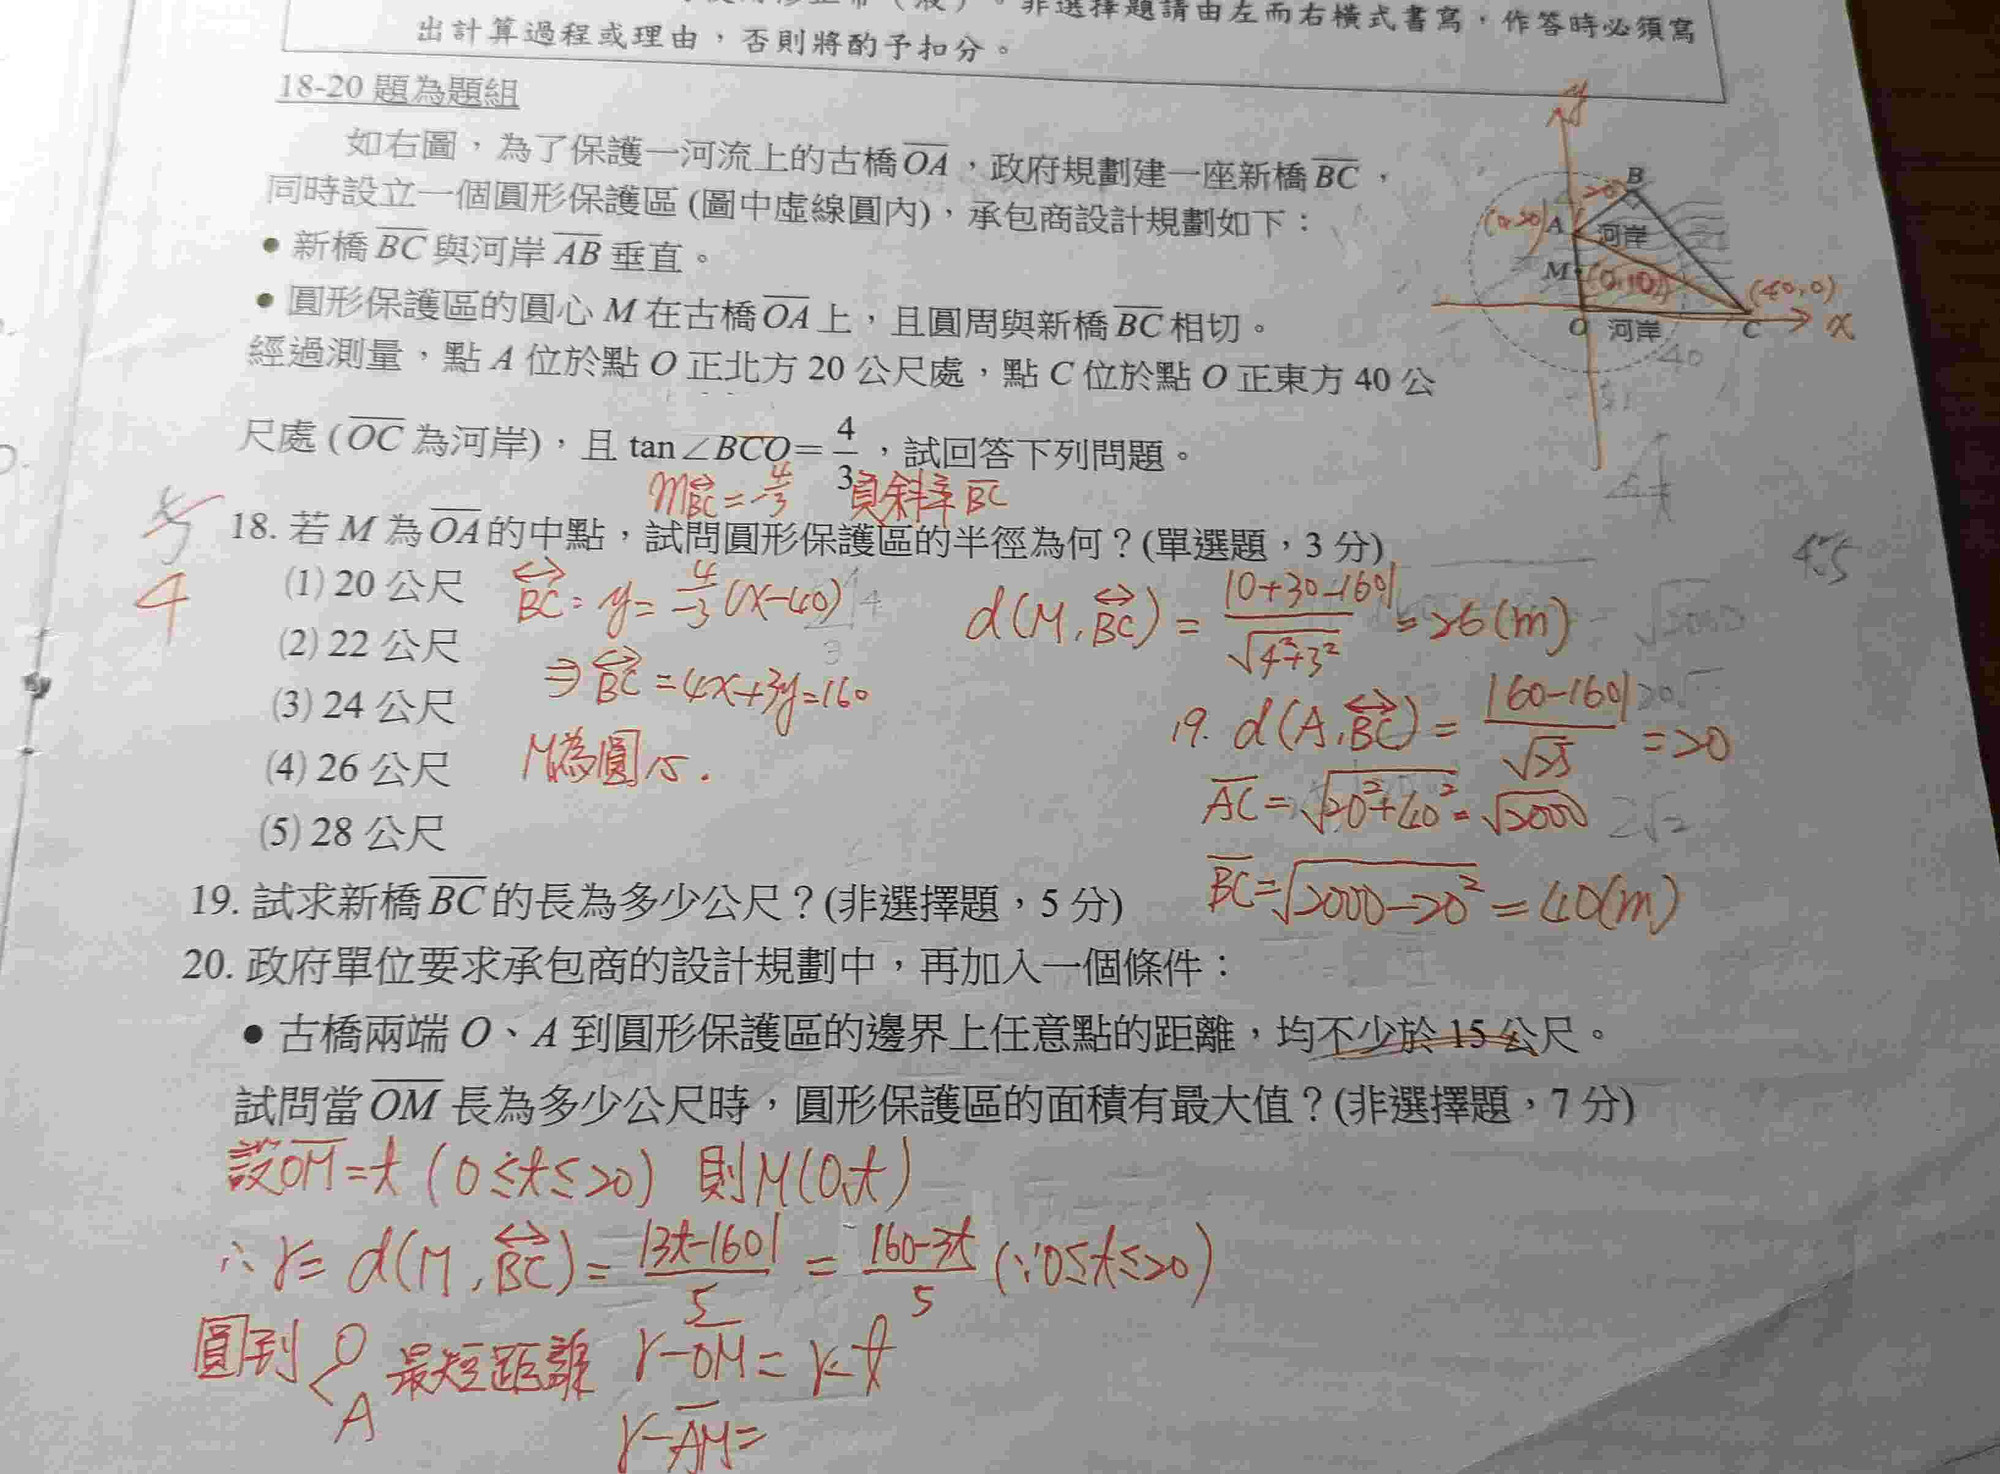 非選擇題請由左而右橫式書寫，作答時必須寫
出計算過程或理由，否則將酌予扣分。
18-20 題為題組
如右圖，為了保護一河流上的古橋OA，政府規劃建一座新橋BC，
同時設立一個圓形保護區 (圖中虛線圓內)，承包商設計規劃如下：
• 新橋 BC 與河岸 AB 垂直。
• 圓形保護區的圓心 M 在古橋 OA 上，且圓周與新橋 BC 相切。
經過測量，點 A 位於點 O 正北方 20 公尺處，點 C 位於點 O 正東方 40 公
尺處 (OC 為河岸)，且 tan∠BCO=4/3，試回答下列問題。
y
B
20
(0,20)
A
河岸
M
(0,10)
(40,0)
O
河岸
C
x
40
mBC=4/-3 負斜率 BC
18. 若 M 為 OA 的中點，試問圓形保護區的半徑為何？(單選題，3 分)
4
(1) 20 公尺
(2) 22 公尺
(3) 24 公尺
(4) 26 公尺
(5) 28 公尺
BC: y=4/-3(x-40)
⇒BC=4x+3y=160
M為圓心.
d(M,BC)=|0+30-160|/√4²+3²=26(m)
19. d(A,BC)=|60-160|/√25=20
AC=√20²+40²=√2000
BC=√2000-20²=40(m)
19. 試求新橋 BC 的長為多少公尺？(非選擇題，5 分)
20. 政府單位要求承包商的設計規劃中，再加入一個條件：
● 古橋兩端 O、A 到圓形保護區的邊界上任意點的距離，均不少於 15 公尺。
試問當 OM 長為多少公尺時，圓形保護區的面積有最大值？(非選擇題，7 分)
設OM=t (0≤t≤20) 則M(0,t)
∴r=d(M,BC)=|3t-160|/5=160-3t/5 (∵0≤t≤20)
圓到<O A 最短距離 r-OM=r-t
r-AM=